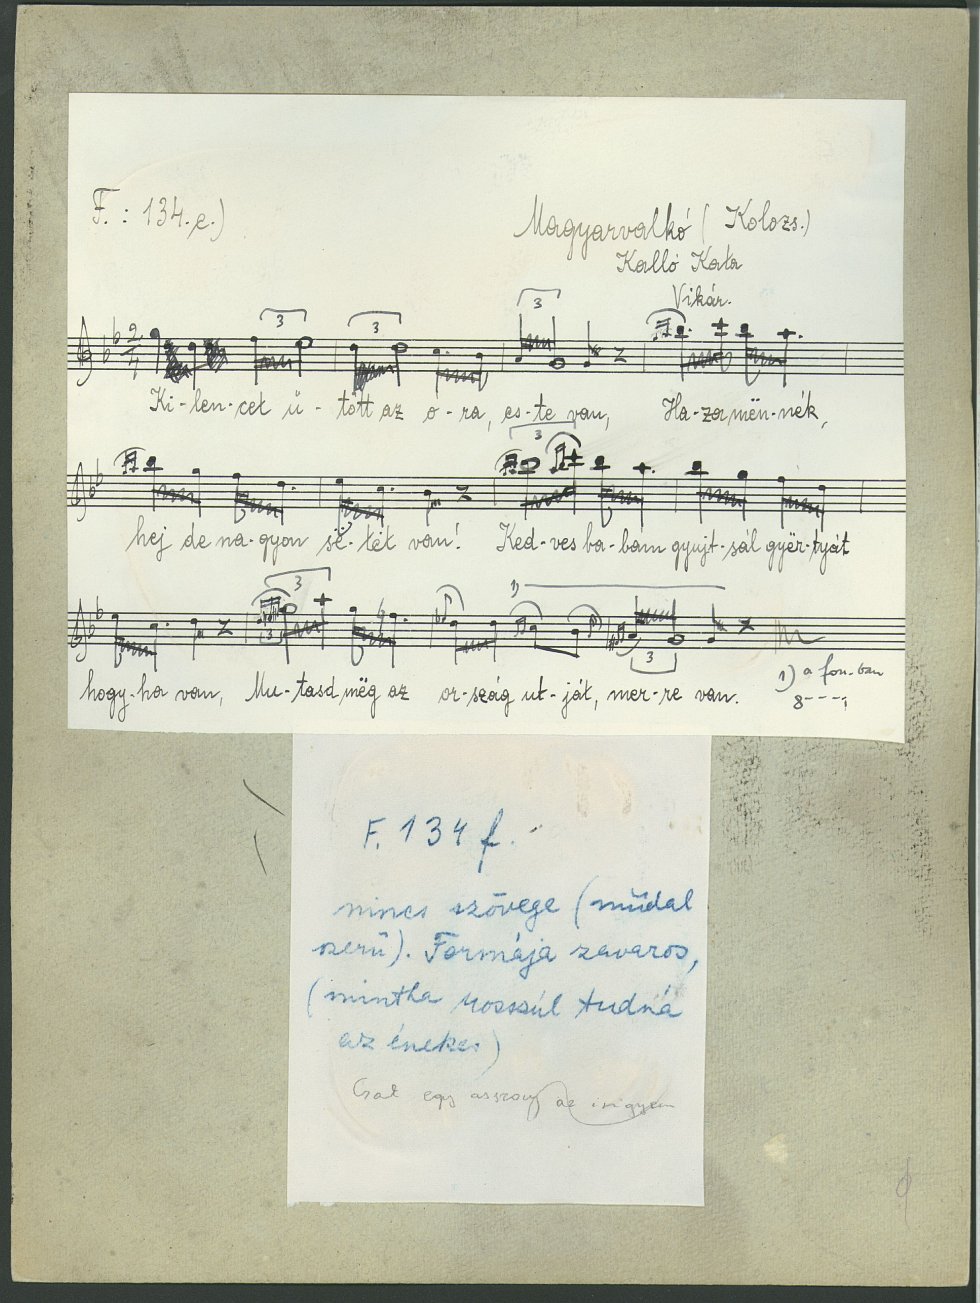 F. : 134. e.)
Magyarvalkó ( Kolozs.)
Kalló Kata
Vikár.
3 3 3
2/4
Ki-len-cet ü-tött az ó-ra, es-te van, Ha-za mën-nék,
3
hej de na-gyon së-tét van! Ked-ves ba-bam gyujt-sál gyër-tyát
3 1)
3 3
hogy-ha van, Mu-tasd mëg az or-szág ut-ját, mer-re van.
1) a fon.-ban
8----;
F. 134 f.
nincs szövege (műdal
szerű). Formája zavaros,
(mintha rosszúl tudná
az énekes)
Csak egy asszony az